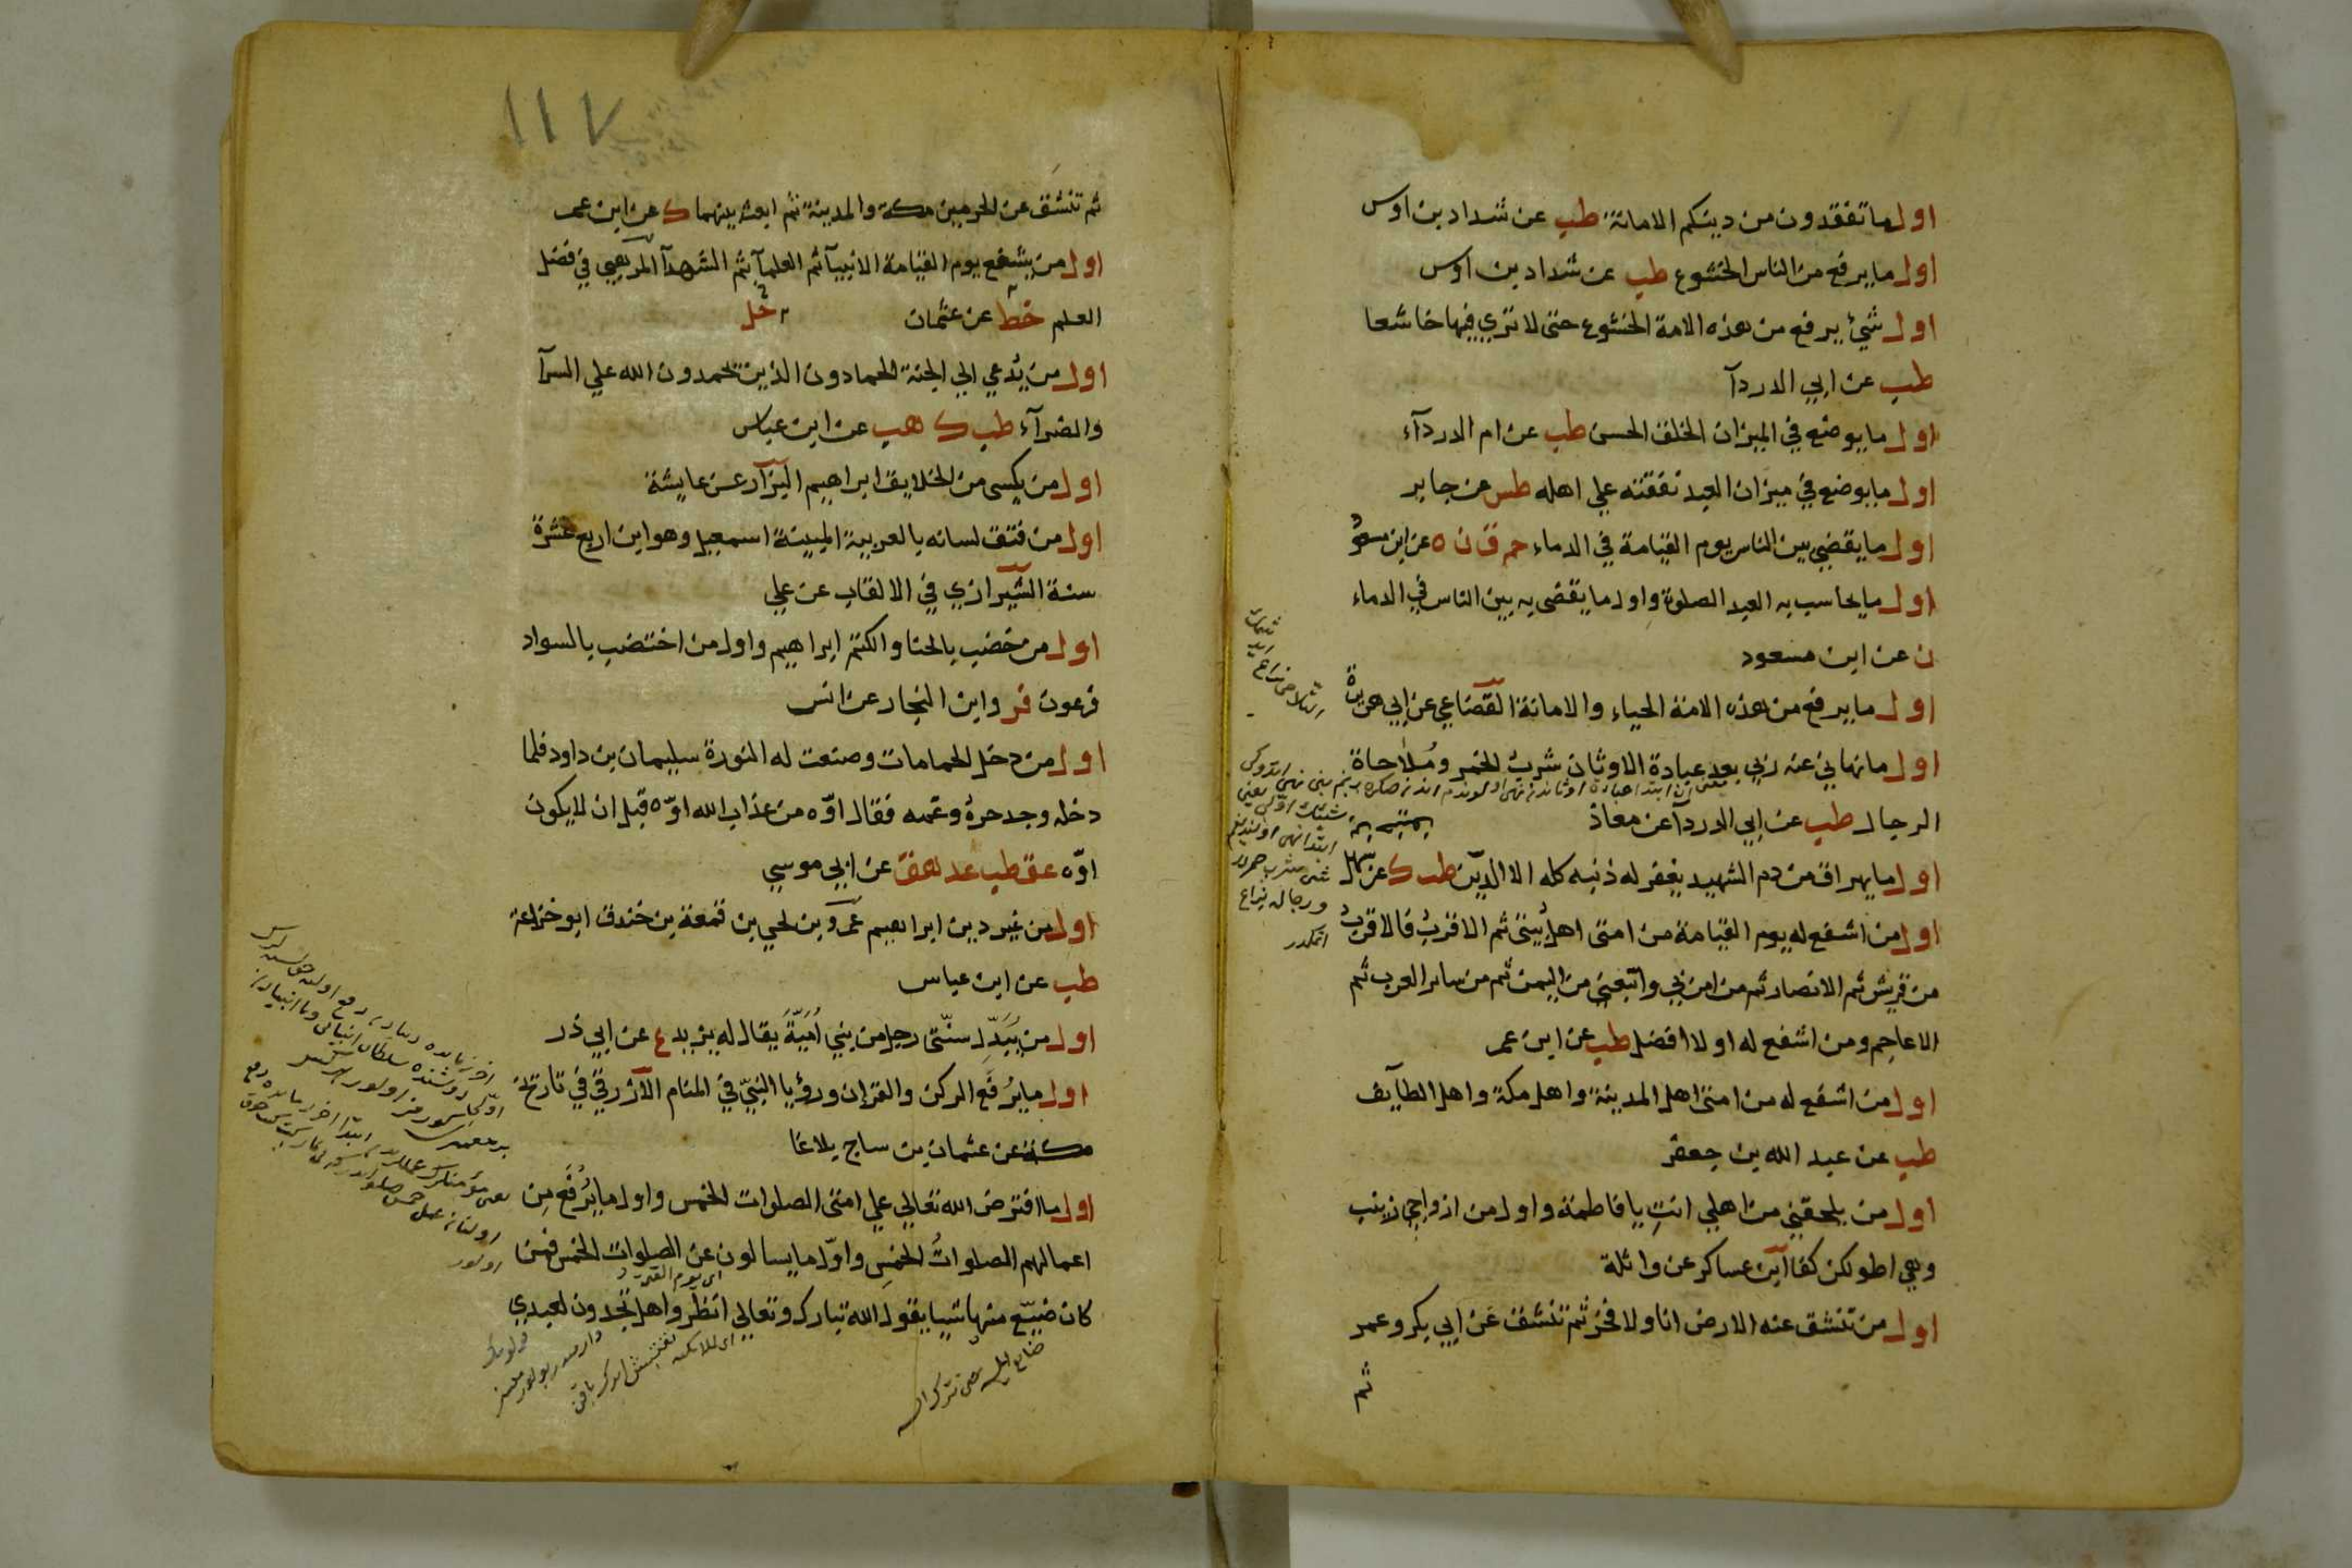 اول ما تفقدون من دينكم الامانة طب عن شداد بن اوس
اول ما يرفع من الناس الخشوع طب عن شداد بن اوس
اول شيء يرفع من هذه الامة الخشوع حتى لا تري فيها خاشعا
طب عن ابي الدردآ
اول ما يوضع في الميزان الخلق الحسن طب عن ام الدردآء
اول ما يوضع في ميزان العبد نفقته علي اهله طس عن جابر
اول ما يقضي بين الناس يوم القيامة في الدماء حم ق ن ه عن ابن مسعود
اول ما يحاسب به العبد الصلوة واول ما يقضى به بين الناس في الدماء
ن عن ابن مسعود
اول ما يرفع من هذه الامة الحياء والامانة القضاعي عن ابي هريرة
اول ما نهاني عنه ربي بعد عبادة الاوثان شرب الخمر وملاحاة
الرجال طب عن ابي الدردآ عن معاذ
اول ما يهراق من دم الشهيد يغفر له ذنبه كله الا الدين طب ك عن سهل
اول من اشفع له يوم القيامة من امتى اهل بيتى ثم الاقرب فالاقرب
من قريش ثم الانصار ثم من امن بي واتبعني من اليمن ثم من ساير العرب ثم
الاعاجم ومن اشفع له اولا افضل طب عن ابن عمر
اول من اشفع له من امتى اهل المدينة واهل مكة واهل الطايف
طب عن عبد الله بن جعفر
اول من يلحقني من اهلي انت يا فاطمة واول من ازواجي زينب
وهي اطولكن كفا ابن عساكر عن واثلة
اول من تنشق عنه الارض انا ولا فخر ثم تنشق عن ابي بكر وعمر
ثم
١١٧
ثم تنشق عن الحرمين مكة والمدينة ثم ابعث بينهما ك عن ابن عمر
اول من يشفع يوم القيامة الانبيآ ثم العلمآ ثم الشهدآ المرهبي في فضل
العلم خط عن عثمان
اول من يدعي الي الجنة الحمادون الذين يحمدون الله علي السرآ
والضرآء طب ك هب عن ابن عباس
اول من يكسى من الخلايق ابراهيم البزار عن عايشة
اول من فتق لسانه بالعربية المبينة اسمعيل وهو ابن اربع عشرة
سنة الشيرازي في الالقاب عن علي
اول من خضب بالحنا والكتم ابراهيم واول من اختضب بالسواد
فرعون فر وابن النجار عن انس
اول من دخل الحمامات وصنعت له النورة سليمان بن داود فلما
دخله وجد حره وغمه فقال اوّه من عذاب الله اوّه قبل ان لا يكون
اوّه عق طب عد هق عن ابي موسي
اول من غير دين ابراهيم عمرو بن لحي بن قمعة بن خندق ابو خزاعة
طب عن ابن عباس
اول من يبدل سنتى رجل من بني امية يقال له يزيد ع عن ابي ذر
اول ما يرفع الركن والقران ورؤيا النبي في المنام الازرقي في تاريخ
مكة عن عثمان بن ساج بلاغا
اول ما افترض الله تعالي علي امتى الصلوات الخمس واول ما يرفع من
اعمالهم الصلوات الخمس واول ما يسالون عن الصلوات الخمس فمن
كان ضيع منها شيا يقول الله تبارك وتعالي انظروا هل تجدون لعبدي